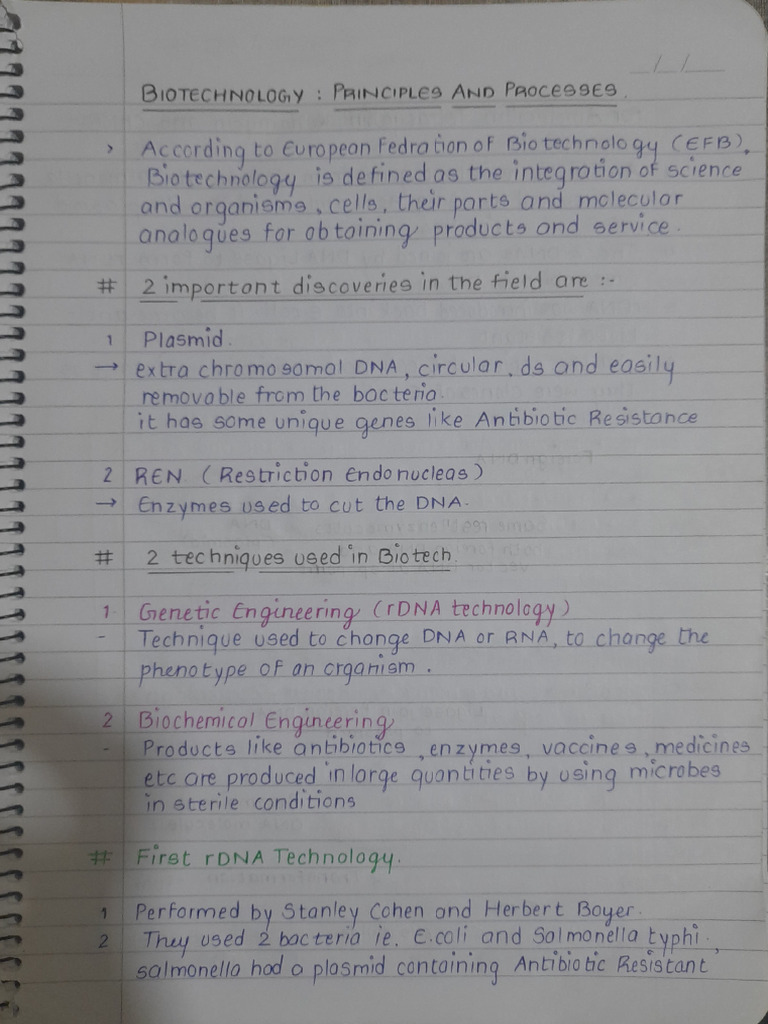 _/_/_
BIOTECHNOLOGY : PRINCIPLES AND PROCESSES.
> According to European Fedration of Biotechnology (EFB),
Biotechnology is defined as the integration of science
and organisms, cells, their parts and molecular
analogues for obtaining products and service.
# 2 important discoveries in the field are :-
1 Plasmid.
→ extra chromosomal DNA, circular, ds and easily
removable from the bacteria.
it has some unique genes like Antibiotic Resistance
2 REN (Restriction Endonucleas)
→ Enzymes used to cut the DNA.
# 2 techniques used in Biotech.
1. Genetic Engineering (rDNA technology)
- Technique used to change DNA or RNA, to change the
phenotype of an organism.
2 Biochemical Engineering
- Products like antibiotics, enzymes, vaccines, medicines
etc are produced in large quantities by using microbes
in sterile conditions
# First rDNA Technology.
1 Performed by Stanley Cohen and Herbert Boyer.
2 They used 2 bacteria ie. E.coli and Salmonella typhi,
salmonella had a plasmid containing Antibiotic Resistant